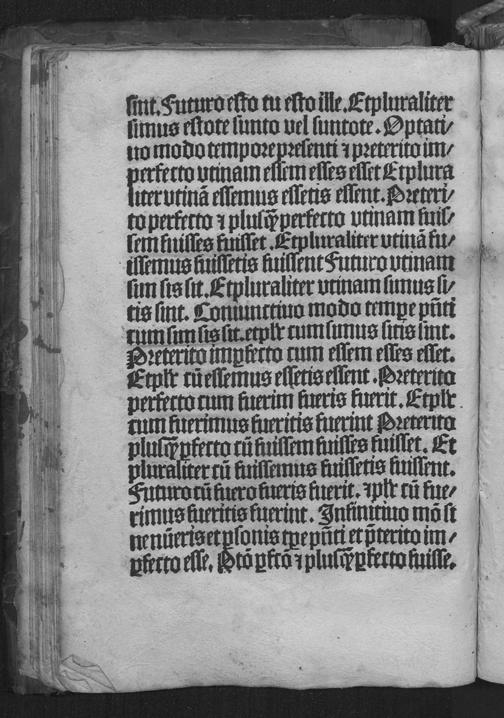 sint. Futuro esto tu esto ille. Etpluraliter
simus estote sunto vel suntote. Optati/
uo modo tempore presenti ⁊ preterito im/
perfecto vtinam essem esses esset Etplura
liter vtinā essemus essetis essent. Preteri/
to perfecto ⁊ plusꝙ̄ perfecto vtinam fuis/
sem fuisses fuisset. Etpluraliter vtinā fu/
issemus fuissetis fuissent Futuro vtinam
sim sis sit. Etpluraliter vtinam simus si/
tis sint. Coniunctiuo modo tempe pn̄ti
cum sim sis sit. etplr̄ cum simus sitis sint.
Preterito imꝑfecto cum essem esses esset.
Etplr̄ cū essemus essetis essent. Preterito
perfecto cum fuerim fueris fuerit. Etplr̄
cum fuerimus fueritis fuerint Preterito
plusꝙ̄ ꝑfecto cū fuissem fuisses fuisset. Et
pluraliter cū fuissemus fuissetis fuissent.
Futuro cū fuero fueris fuerit. ⁊plr̄ cū fue/
rimus fueritis fuerint. Infinitiuo mō si
ne nūeris et ꝑsonis tꝑe pn̄ti et p̄terito im/
ꝑfecto esse. Ptō ꝑfcō ⁊ plusꝙ̄ ꝑfecto fuisse.